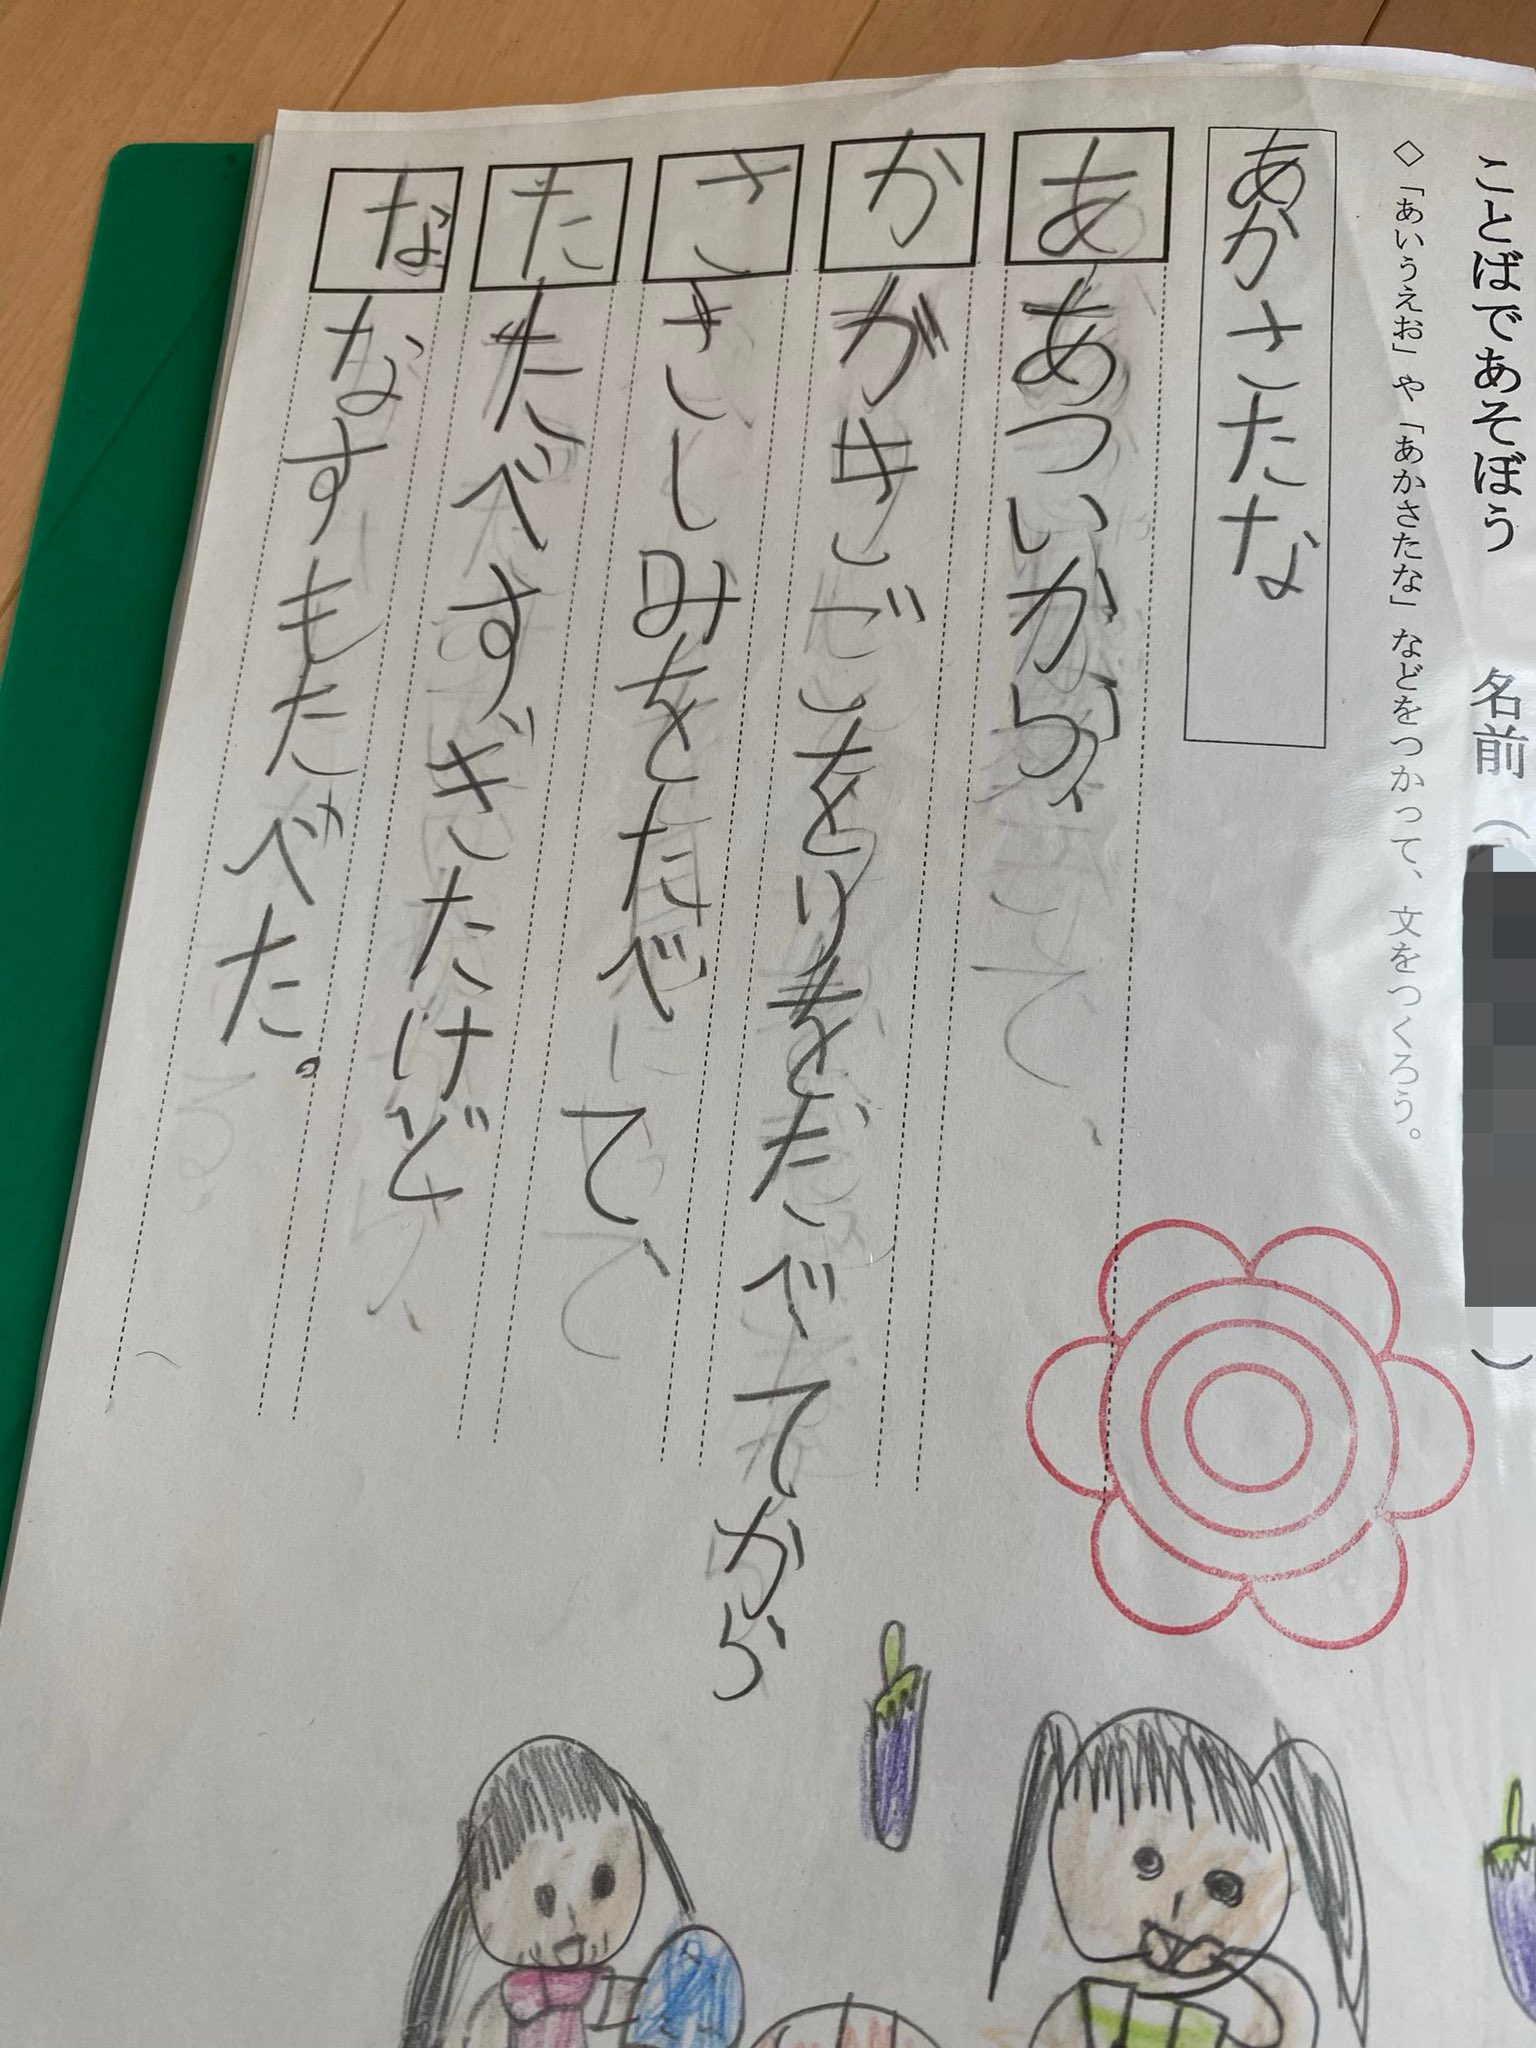 ことばであそぼう　名前（　）
◇「あいうえお」や「あかさたな」などをつかって、文をつくろう。
あかさたな
あ　あついから、
か　がきごおりをたべてから
さ　さしみをたべて、
た　たべすぎたけど
な　なすもたべた。